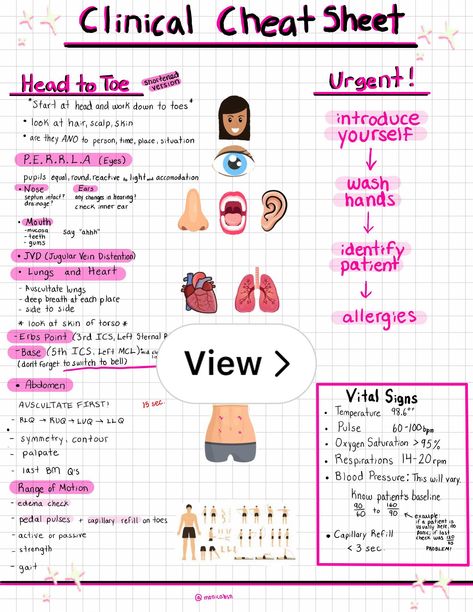 Clinical Cheat Sheet
Head to Toe
shortened
version
"Start at head and work down to toes"
• look at hair, scalp, skin
• are they AND to person, time, place, situation
P.E.R.R.L.A (Eyes)
pupils equal, round, reactive to light and accomodation
• Nose
septum intact?
drainage?
Ears
any changes in hearing?
check inner ear
• Mouth
-mucosa
- teeth
- gums
say "ahhh"
• JVD (Jugular Vein Distention)
• Lungs and Heart
- Auscultate lungs
- deep breath at each place
- side to side
* look at skin of torso *
- Erbs Point (3rd ICS, Left Sternal
- Base (5th ICS, Left MCL)
(don't forget to switch to bell)
• Abdomen
AUSCULTATE FIRST!
15 sec.
- RLQ → RUQ → LUQ → LLQ
- symmetry, contour
- palpate
- last BM Q's
Range of Motion
- edema check
- pedal pulses + capillary refill on toes
- active or passive
- strength
- gait
View >
Urgent!
introduce
yourself
wash
hands
identify
patient
allergies
Vital Signs
• Temperature 98.6°
• Pulse 60-100 bpm
• Oxygen Saturation > 95%
• Respirations 14-20 rpm
• Blood Pressure: This will vary.
Know patients baseline
90/60 to 160/90
example:
if a patient is
usually here, no
panic; if last
check was 120/80
PROBLEM!
• Capillary Refill
< 3 sec.